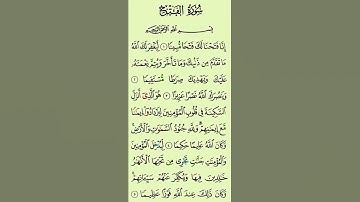 سُورَةُ الفَتْحِ
بِسْمِ اللَّهِ الرَّحْمَٰنِ الرَّحِيمِ
إِنَّا فَتَحْنَا لَكَ فَتْحًا مُّبِينًا ١ لِّيَغْفِرَ لَكَ اللَّهُ
مَا تَقَدَّمَ مِن ذَنبِكَ وَمَا تَأَخَّرَ وَيُتِمَّ نِعْمَتَهُ
عَلَيْكَ وَيَهْدِيَكَ صِرَاطًا مُّسْتَقِيمًا ٢
وَيَنصُرَكَ اللَّهُ نَصْرًا عَزِيزًا ٣ هُوَ الَّذِي أَنزَلَ
السَّكِينَةَ فِي قُلُوبِ الْمُؤْمِنِينَ لِيَزْدَادُوا إِيمَانًا
مَّعَ إِيمَانِهِمْ وَلِلَّهِ جُنُودُ السَّمَاوَاتِ وَالْأَرْضِ
وَكَانَ اللَّهُ عَلِيمًا حَكِيمًا ٤ لِّيُدْخِلَ الْمُؤْمِنِينَ
وَالْمُؤْمِنَاتِ جَنَّاتٍ تَجْرِي مِن تَحْتِهَا الْأَنْهَارُ
خَالِدِينَ فِيهَا وَيُكَفِّرَ عَنْهُمْ سَيِّئَاتِهِمْ
وَكَانَ ذَٰلِكَ عِندَ اللَّهِ فَوْزًا عَظِيمًا ٥